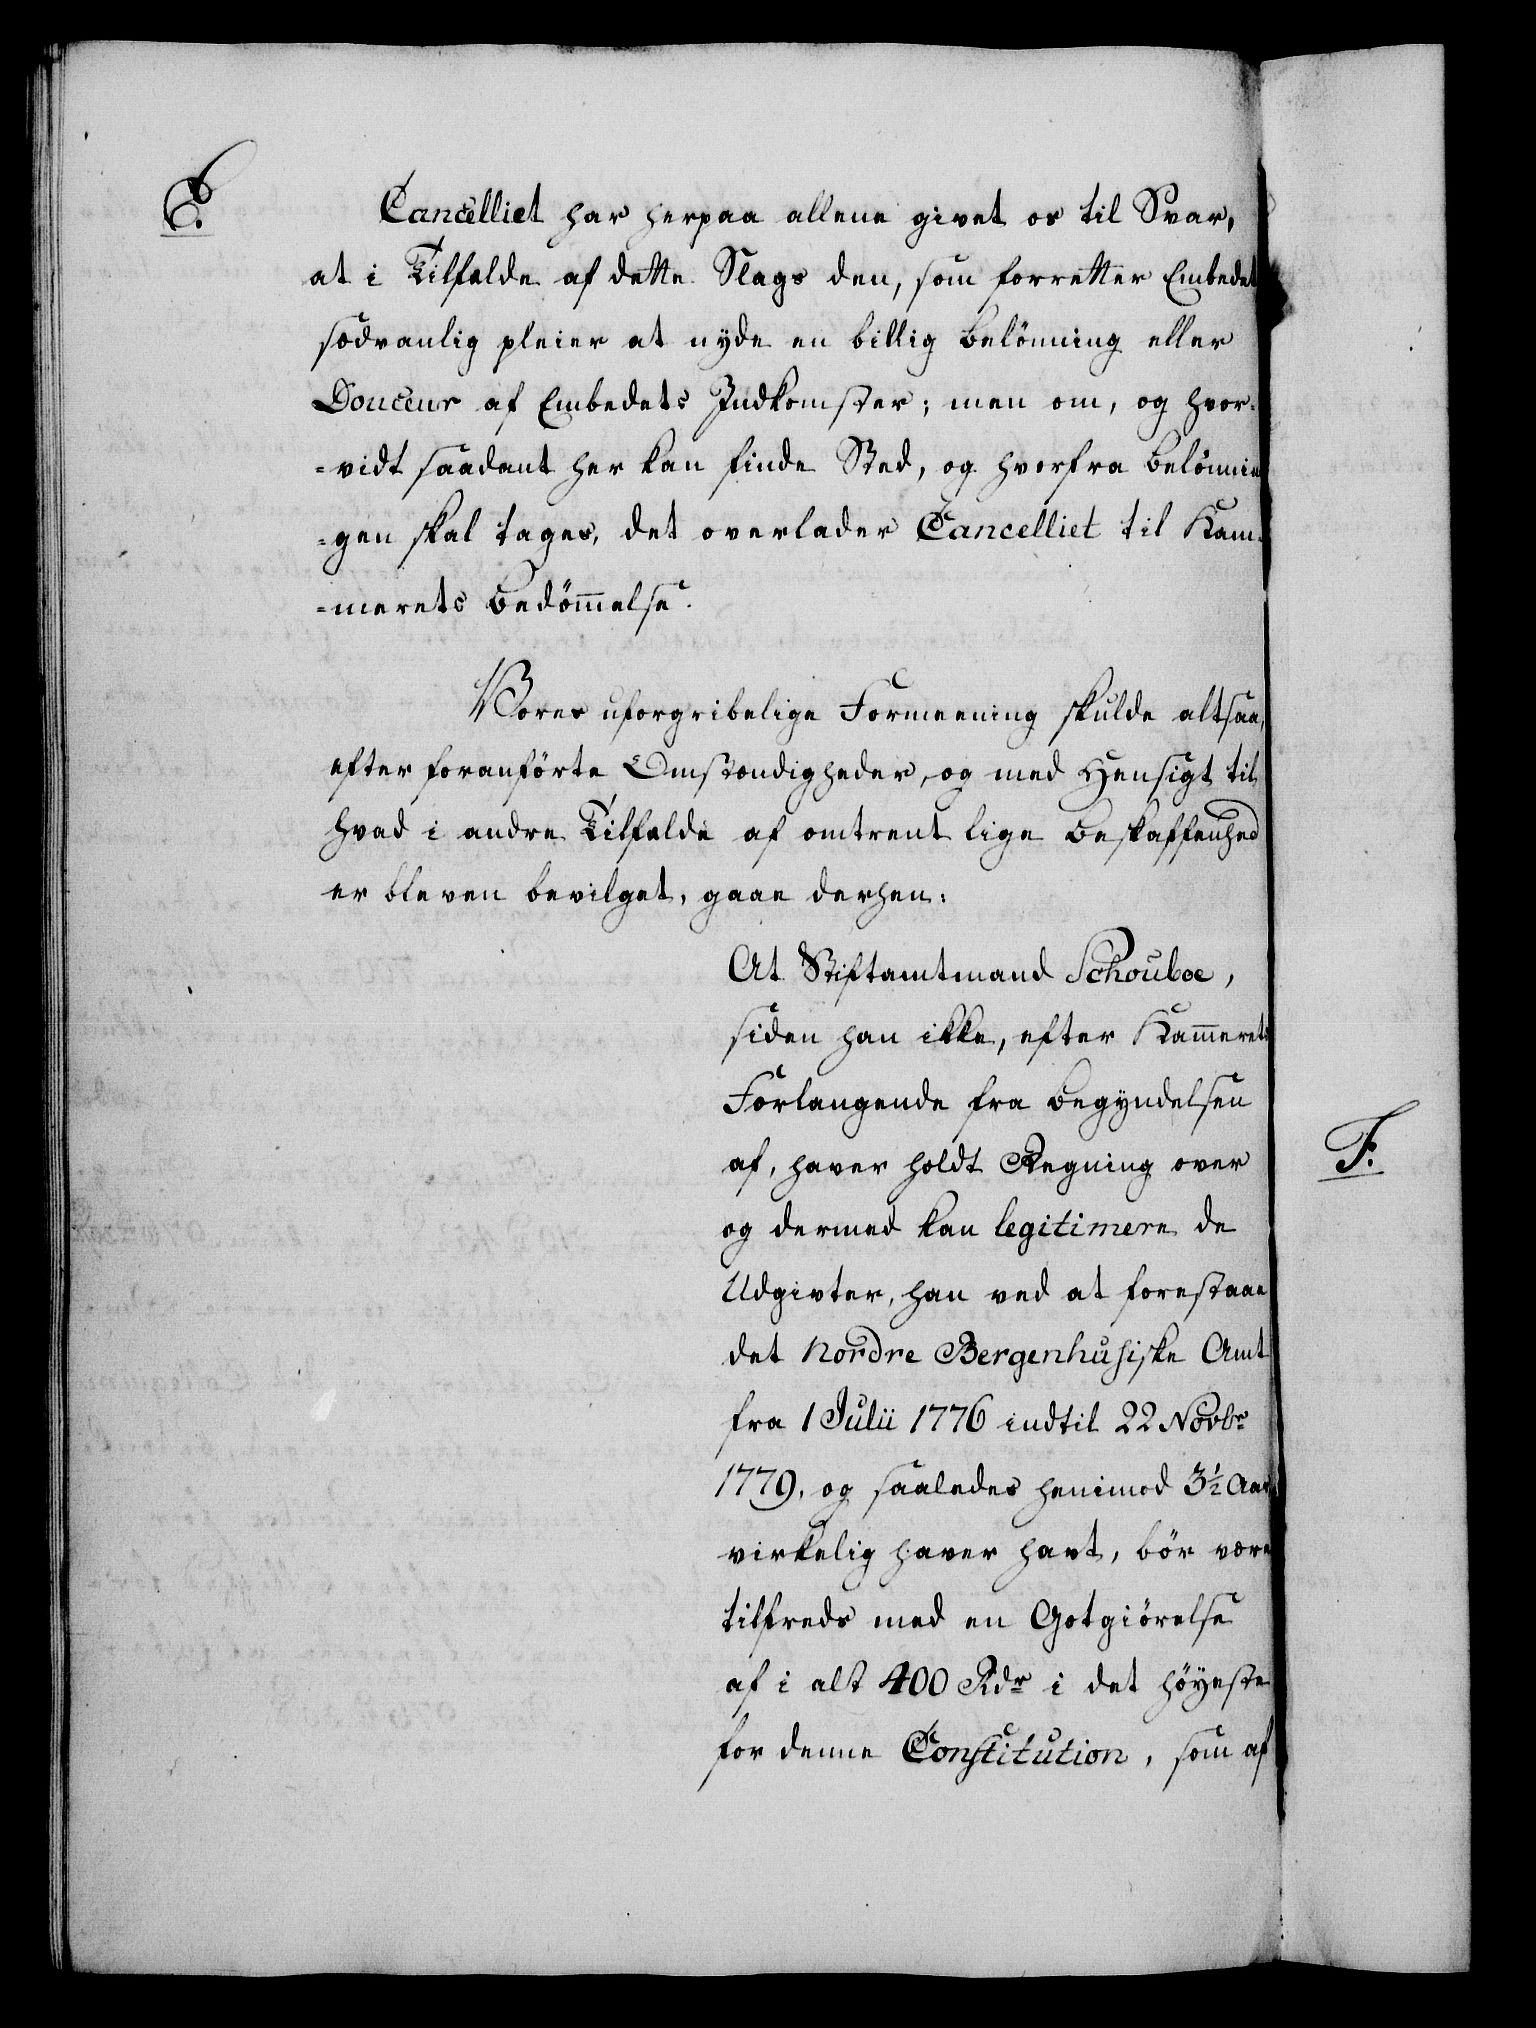 E.
Cancelliet har herpaa allene givet os til Svar,
at i Tilfælde af dette Slags den, som forretter Embedet
sædvanlig pleier at nyde en billig Belönning eller
Douceur af Embedets Indkomster; men om, og hvor-
=vidt saadant her kan finde Sted, og hvorfra Belönnin
=gen skal tages, det overlader Cancelliet til Kam-
=merets Bedöm̅else.
Vores uforgribelige Formeening skulde altsaa,
efter foranförte Omstændigheder, og med Hensigt til
hvad i andre Tilfælde af omtrent lige Beskaffenhed
er bleven bevilget, gaae derhen:
At Stiftamtmand Schouboe,
siden han ikke, efter Kam̅erets
Forlangende fra Begyndelsen
af, haver holdt Regning over
og dermed kan legitimere de
Udgivter, han ved at forestaae
det Nordre Bergenhusiske Amt
fra 1 Julii 1776 indtil 22 Novbr
1779, og saaledes henimod 3½ Aar
virkelig haver havt, bör være
tilfreds med en Godtgiörelse
af i alt 400 Rdr i det höyeste
for denne Constitution, som af
F.